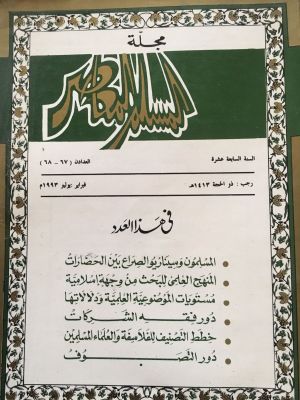 مجلة
المسلم المعاصر
السنة السابعة عشرة
العددان (٦٧ - ٦٨)
رجب : ذو الحجة ١٤١٣هـ
فبراير : يوليو ١٩٩٣م
في هذا العدد
المسلمون وسيناريو الصراع بين الحضارات
المنهج العلمي للبحث من وجهة اسلامية
مستويات الموضوعية العلمية ودلالاتها
دور فقه الشركات
خطط التصنيف للفلاسفة والعلماء المسلمين
دور التصوف